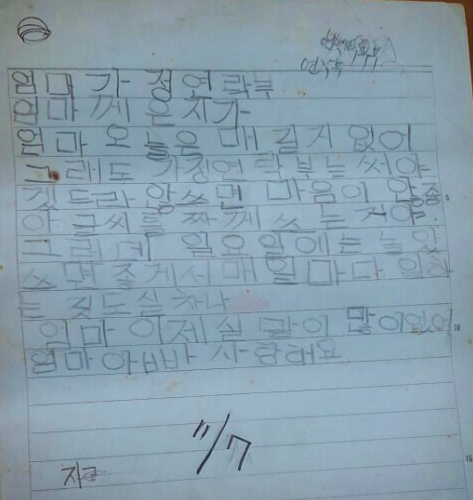 연락부
엄마 가 정연락부
엄마 께 은지가
엄마 오늘은 매 길지 없어
그래도 가정연락부는 써야
것드라 않쓰면 마음이 않좋
아 글씨를 짜께 쓰는거야.
그런데 일요일에는 늘 않
쓰면 좋게서 매일마다 일하
는 것도 실차나
엄마 이제 실 말이 많이없어
엄마아빠빠 사랑해요
11/7
지금